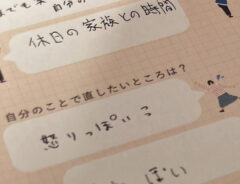 休日の家族との時間
自分のことで直したいところは？
怒りっぽいこ
ぽい